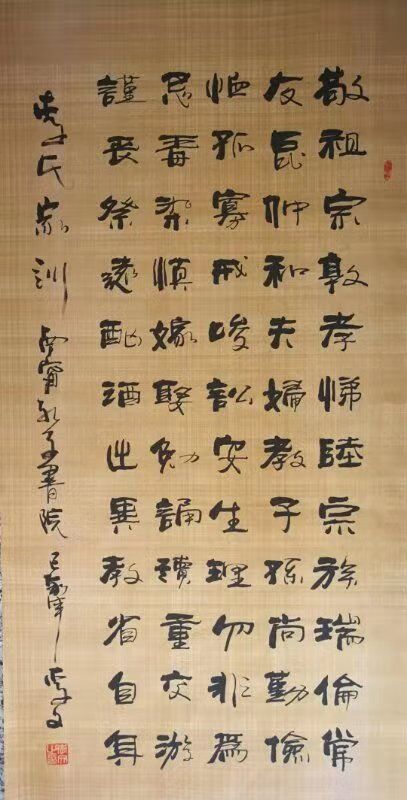 敬祖宗敦孝悌睦宗族瑞倫常
友昆仲和夫婦教子孫尚勤儉
恤孤寡戒唆訟安生理勿非爲
忌毒染慎嫁娶勉誦讀重交游
謹喪祭遠酗酒出異教省自身
李氏家訓 書院 己亥年